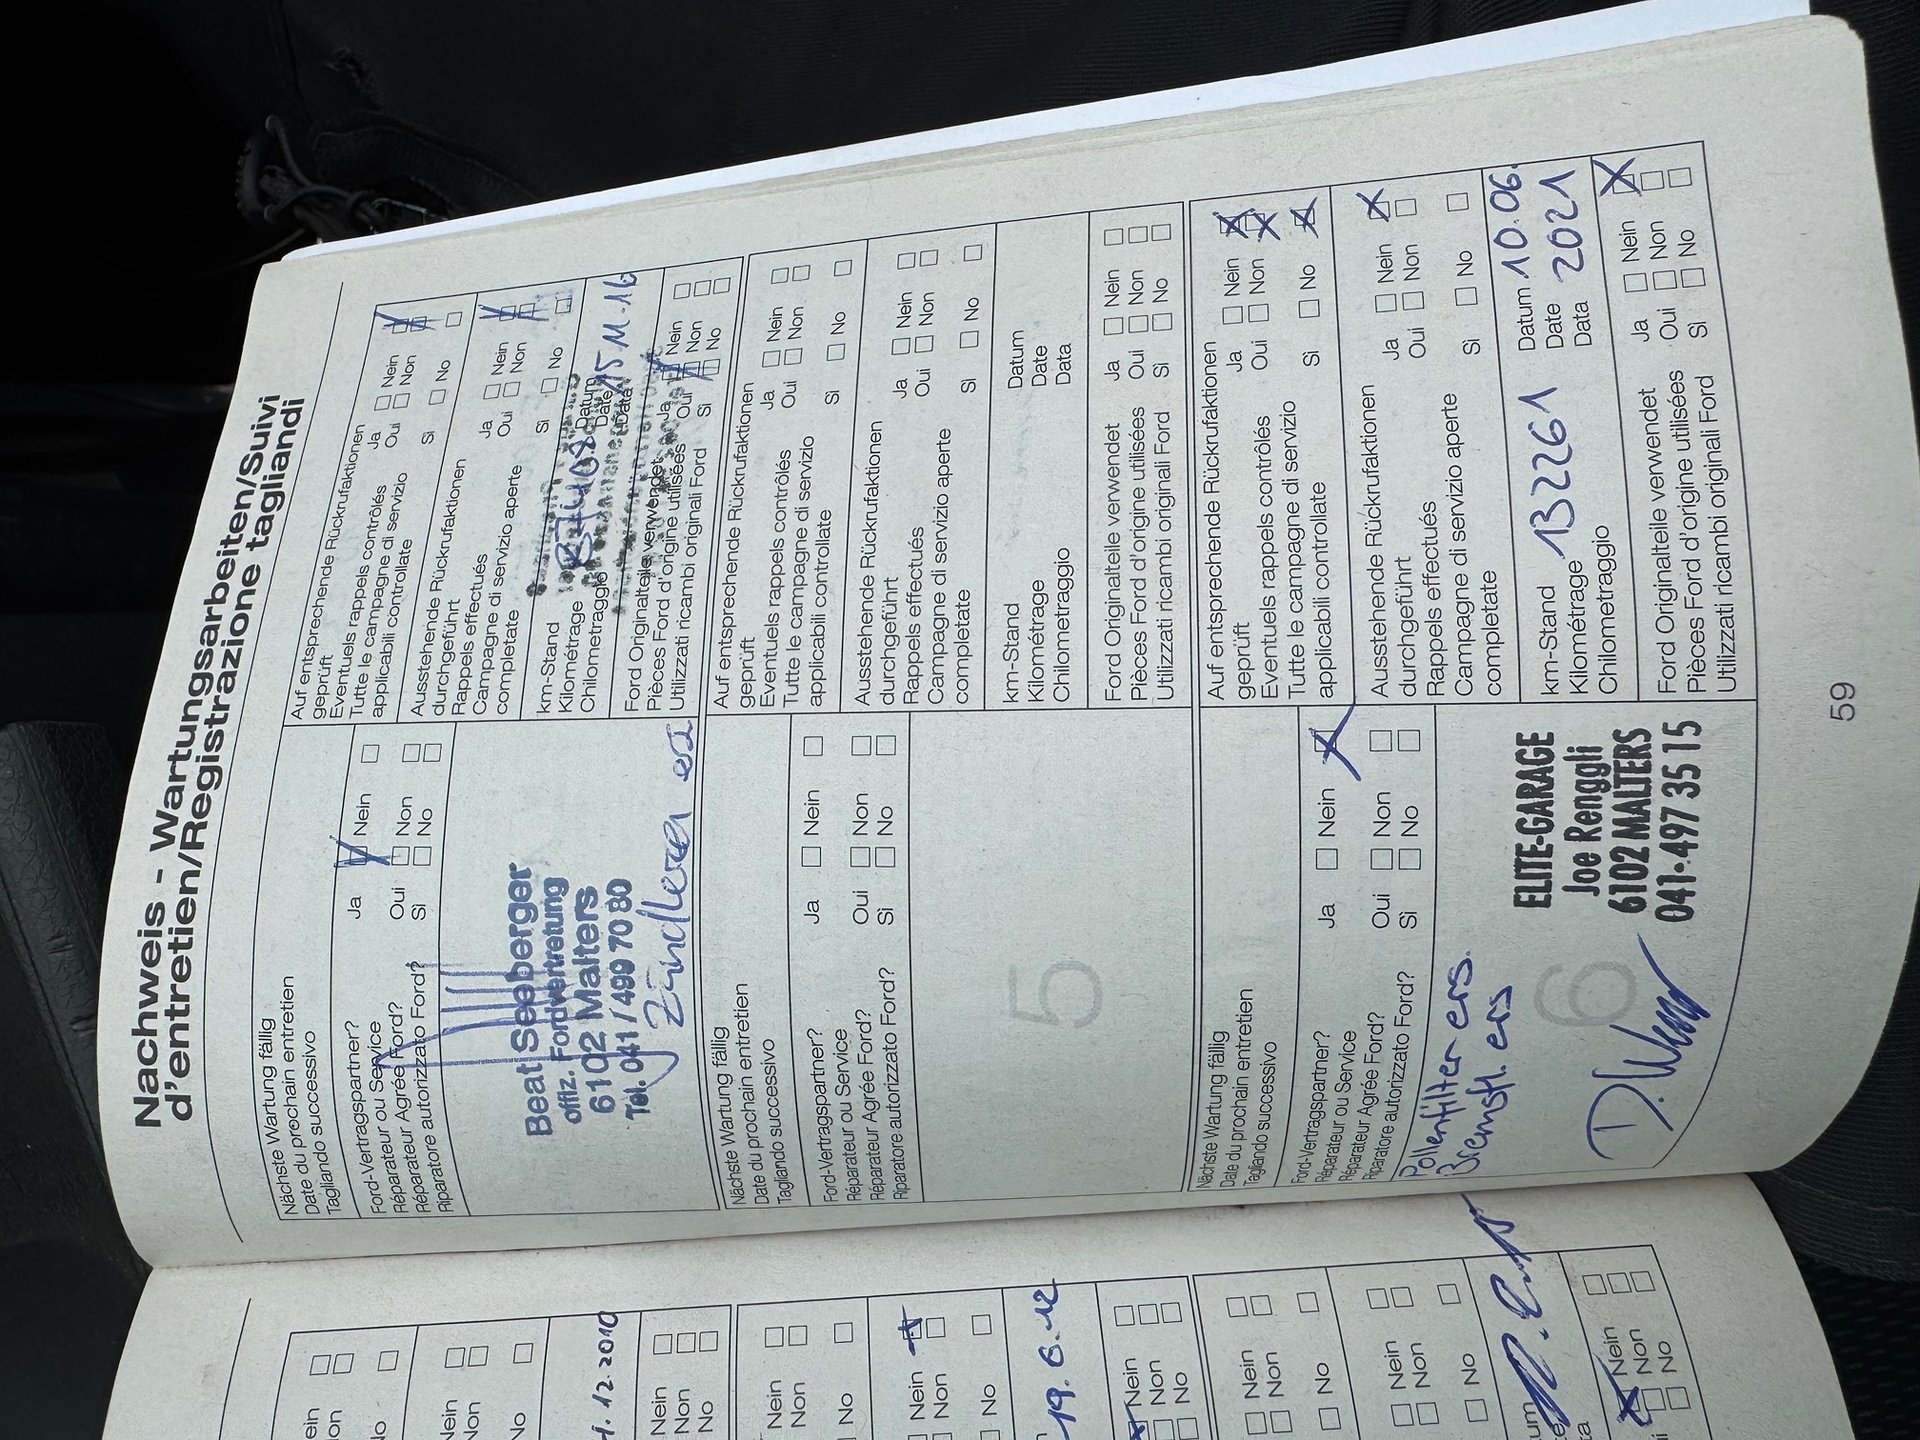 Nachweis - Wartungsarbeiten/Suivi
d'entretien/Registrazione tagliandi
Nächste Wartung fällig
Date du prochain entretien
Tagliando successivo
Ford-Vertragspartner?
Réparateur ou Service
Réparateur Agrée Ford?
Riparatore autorizzato Ford?
Ja Nein
Oui Non
Si No
Beat Seeberger
offiz. Fordvertretung
6102 Malters
Tel. 041 / 499 70 80
Auf entsprechende Rückrufaktionen
geprüft
Eventuels rappels contrôlés
Tutte le campagne di servizio
applicabili controllate
Ja Nein
Oui Non
Si No
Ausstehende Rückrufaktionen
durchgeführt
Rappels effectués
Campagne di servizio aperte
completate
Ja Nein
Oui Non
Si No
km-Stand
Kilométrage
Chilometraggio
Datum
Date 15.11.16
Data
Ford Originalteile verwendet
Pièces Ford d'origine utilisées
Utilizzati ricambi originali Ford
Ja Nein
Oui Non
Si No
Nächste Wartung fällig
Date du prochain entretien
Tagliando successivo
Ford-Vertragspartner?
Réparateur ou Service
Réparateur Agrée Ford?
Riparatore autorizzato Ford?
Ja Nein
Oui Non
Si No
5
Auf entsprechende Rückrufaktionen
geprüft
Eventuels rappels contrôlés
Tutte le campagne di servizio
applicabili controllate
Ja Nein
Oui Non
Si No
Ausstehende Rückrufaktionen
durchgeführt
Rappels effectués
Campagne di servizio aperte
completate
Ja Nein
Oui Non
Si No
km-Stand
Kilométrage
Chilometraggio
Datum
Date
Data
Ford Originalteile verwendet
Pièces Ford d'origine utilisées
Utilizzati ricambi originali Ford
Ja Nein
Oui Non
Si No
Nächste Wartung fällig
Date du prochain entretien
Tagliando successivo
Ford-Vertragspartner?
Réparateur ou Service
Réparateur Agrée Ford?
Riparatore autorizzato Ford?
Ja Nein
Oui Non
Si No
Pollenfilter ers.
Bremsfl. ers
6
ELITE-GARAGE
Joe Renggli
6102 MALTERS
041-497 35 15
Auf entsprechende Rückrufaktionen
geprüft
Eventuels rappels contrôlés
Tutte le campagne di servizio
applicabili controllate
Ja Nein
Oui Non
Si No
Ausstehende Rückrufaktionen
durchgeführt
Rappels effectués
Campagne di servizio aperte
completate
Ja Nein
Oui Non
Si No
km-Stand
Kilométrage 132261
Chilometraggio
Datum 10.06.
Date 2021
Data
Ford Originalteile verwendet
Pièces Ford d'origine utilisées
Utilizzati ricambi originali Ford
Ja Nein
Oui Non
Si No
59
Non
No
Non
No
12.2010
Nein
Non
No
Nein
Non
No
Nein
Non
No
19.6.12
Nein
Non
No
Nein
Non
No
Nein
Non
No
Nein
Non
No